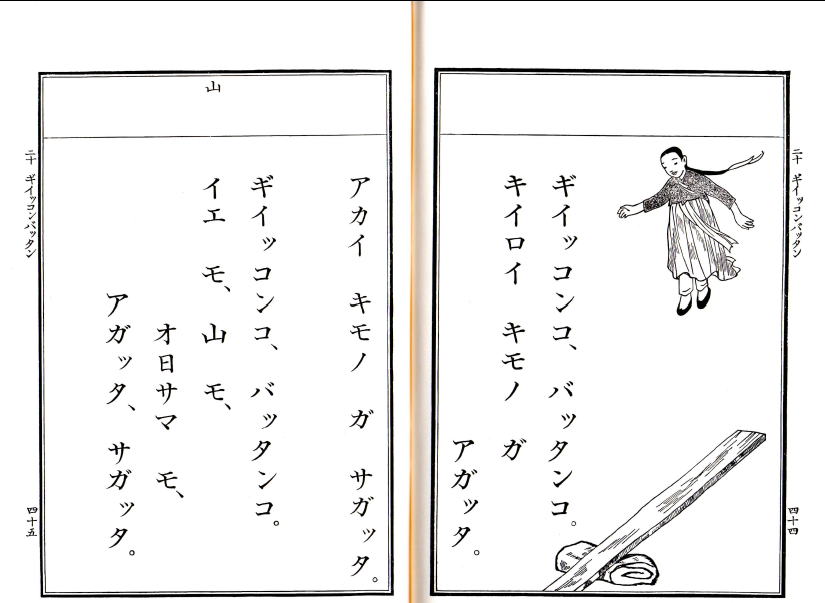 二十 ギイッコンバッタン
四十四
ギイッコンコ、バッタンコ。
キイロイ キモノ ガ
アガッタ。
山
アカイ キモノ ガ サガッタ。
ギイッコンコ、バッタンコ。
イエ モ、山 モ、
オ日サマ モ、
アガッタ、サガッタ。
二十 ギイッコンバッタン
四十五